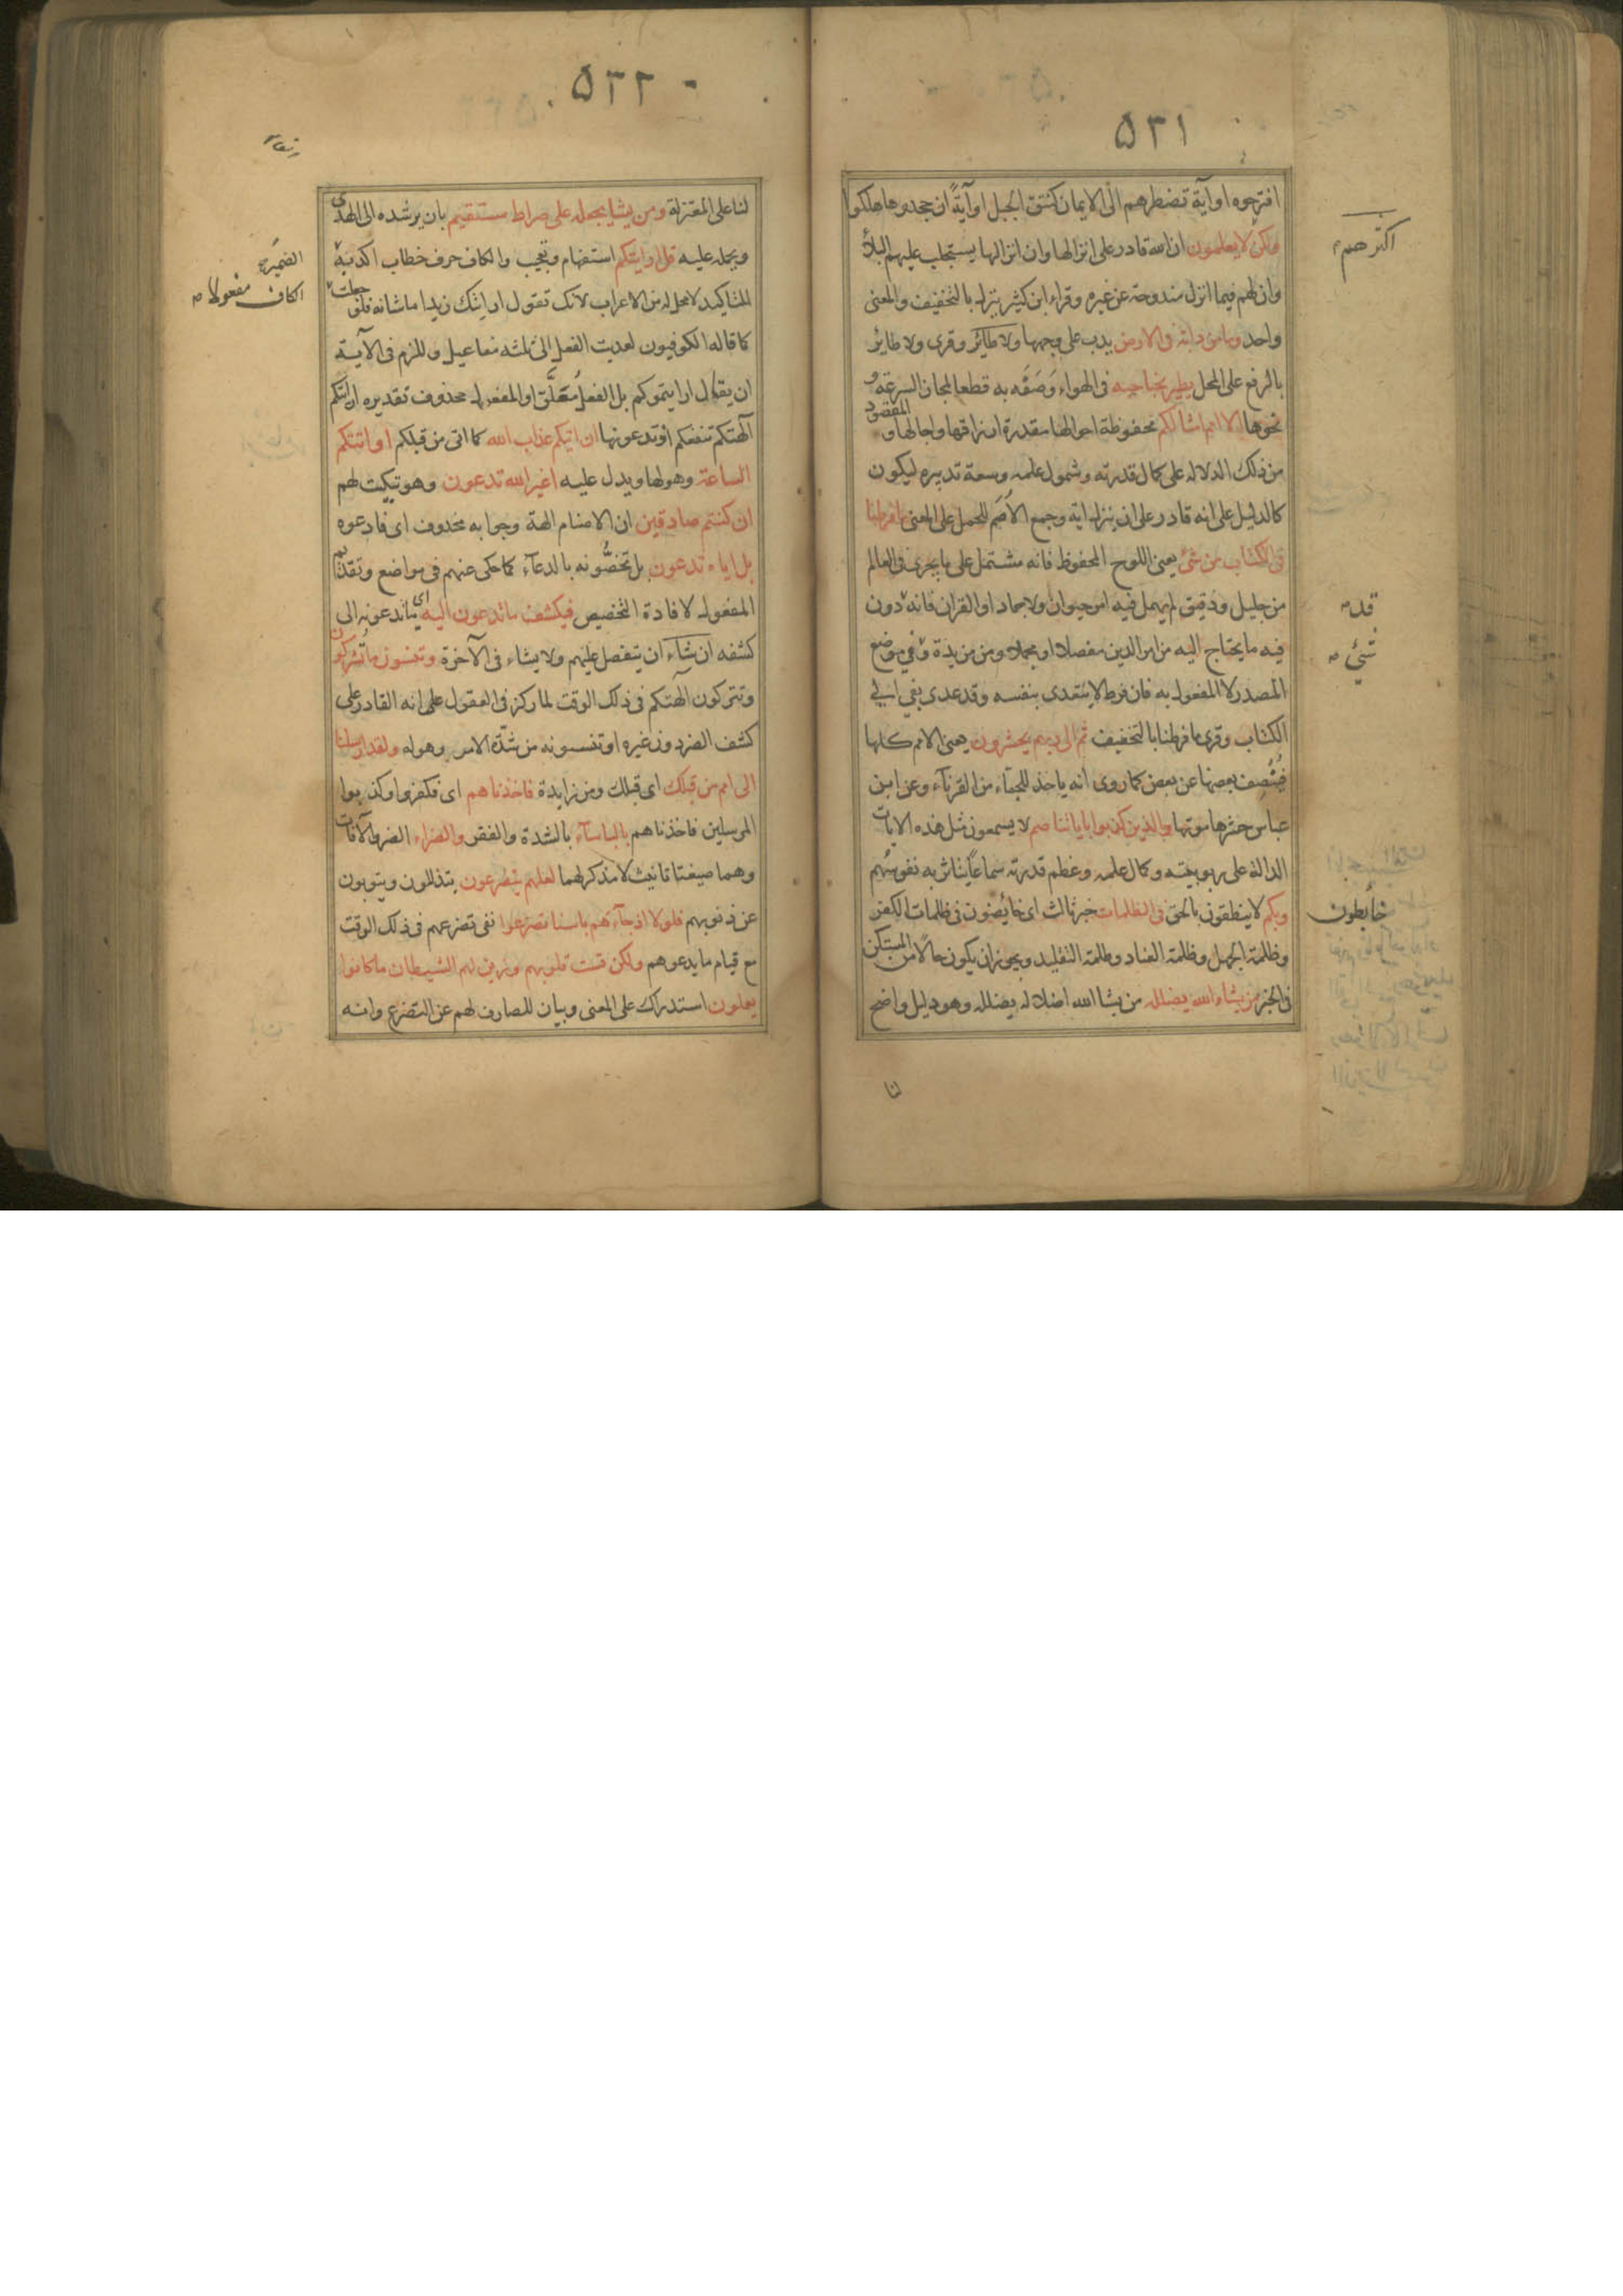 ٥٣١
اقترحوه او آية تضطرهم الى الايمان كنتق الجبل او آية ان جحدوها هلكوا
ولكن لا يعلمون ان الله قادر على انزالها وان انزالها يستجلب عليهم البلاء
اكثرهم
وان لهم فيما انزل مندوحة عن غيره وقراء ابن كثير ينزل بالتخفيف والمعنى
واحد وما من دابة في الارض يدب على وجهها ولا طائر وقرى ولا طائر
بالرفع على المحل يطير بجناحيه في الهواء وصفه به قطعا لمجاز السرعة و
نحوها الا امم امثالكم محفوظة احوالها مقدرة ارزاقها واجالها و المقصود
من ذلك الدلالة على كمال قدرته وشمول علمه وسعة تدبيره ليكون
كالدليل على انه قادر على ان ينزل اية وجمع الامم للحمل على المعنى ما فرطنا
في الكتاب من شئ يعنى اللوح المحفوظ فانه مشتمل على ما يجرى في العالم
من جليل ودقيق لم يهمل فيه امر حيوان ولا جماد او القران فانه دون
قد
فيه ما يحتاج اليه من امر الدين مفصلا او مجملا ومن مزيدة و في موضع
شيئ
المصدر لا المفعول به فان فرط لا يتعدى بنفسه وقد عدى بفي الى
الكتاب وقرى ما فرطنا بالتخفيف ثم الى ربهم يحشرون يعنى الامم كلها
فينصف بعضها عن بعض كما روى انه ياخذ للجماء من القرناء وعن ابن
عباس حشرها موتها والذين كذبوا باياتنا صم لا يسمعون مثل هذه الايات
الدالة على ربوبيته وكمال علمه وعظم قدرته سماعا يتاثر به نفوسهم
وبكم لا ينطقون بالحق في الظلمات خبر ثالث اى خابضون في ظلمات الكفر
خابطون
وظلمة الجهل وظلمة العناد وظلمة التقليد ويجوز ان يكون حالا من المستكن
في الخبر من يشاء الله يضلله من يشا الله اضلاله يضلله وهو دليل واضح
لنا
٥٣٢
لنا على المعتزلة ومن يشا يجعله على صراط مستقيم بان يرشده الى الهدى
ويحمله عليه قل ارايتكم استفهام وتعجيب والكاف حرف خطاب اكد به
الضمير
للتاكيد لا محل له من الاعراب لانك تقول ارايتك زيدا ما شانه فلو جعلت
الكاف مفعولا
كما قاله الكوفيون لعديت الفعل الى ثلثة مفاعيل وللزم في الآية
ان يقال ارايتموكم بل الفعل معلق او المفعول محذوف تقديره ارايتكم
آلهتكم تنفعكم اذ تدعونها ان اتيكم عذاب الله كما اتى من قبلكم او اتتكم
الساعة وهولها ويدل عليه اغير الله تدعون وهو تبكيت لهم
ان كنتم صادقين ان الاصنام الهة وجوابه محذوف اى فادعوه
بل اياه تدعون بل تخصونه بالدعاء كما حكى عنهم في مواضع وتقديم
المفعول لافادة التخصيص فيكشف ما تدعون اليه اى ما تدعونه الى
كشفه ان شاء ان يتفضل عليهم ولا يشاء في الآخرة وتنسون ما تشركون
وتتركون آلهتكم في ذلك الوقت لما ركز في العقول على انه القادر على
كشف الضر دون غيره او تنسونه من شدة الامر وهوله ولقد ارسلنا
الى امم من قبلك اى قبلك ومن زايدة فاخذناهم اى فكفروا وكذبوا
المرسلين فاخذناهم بالباساء بالشدة والفقر والضراء الضر والآفات
وهما صيغتا تانيث لا مذكر لهما لعلهم يتضرعون يتذللون ويتوبون
عن ذنوبهم فلولا اذ جاءهم باسنا تضرعوا نفى تضرعهم في ذلك الوقت
مع قيام ما يدعوهم ولكن قست قلوبهم وزين لهم الشيطان ما كانوا
يعملون استدراك على المعنى وبيان للصارف لهم عن التضرع وانه